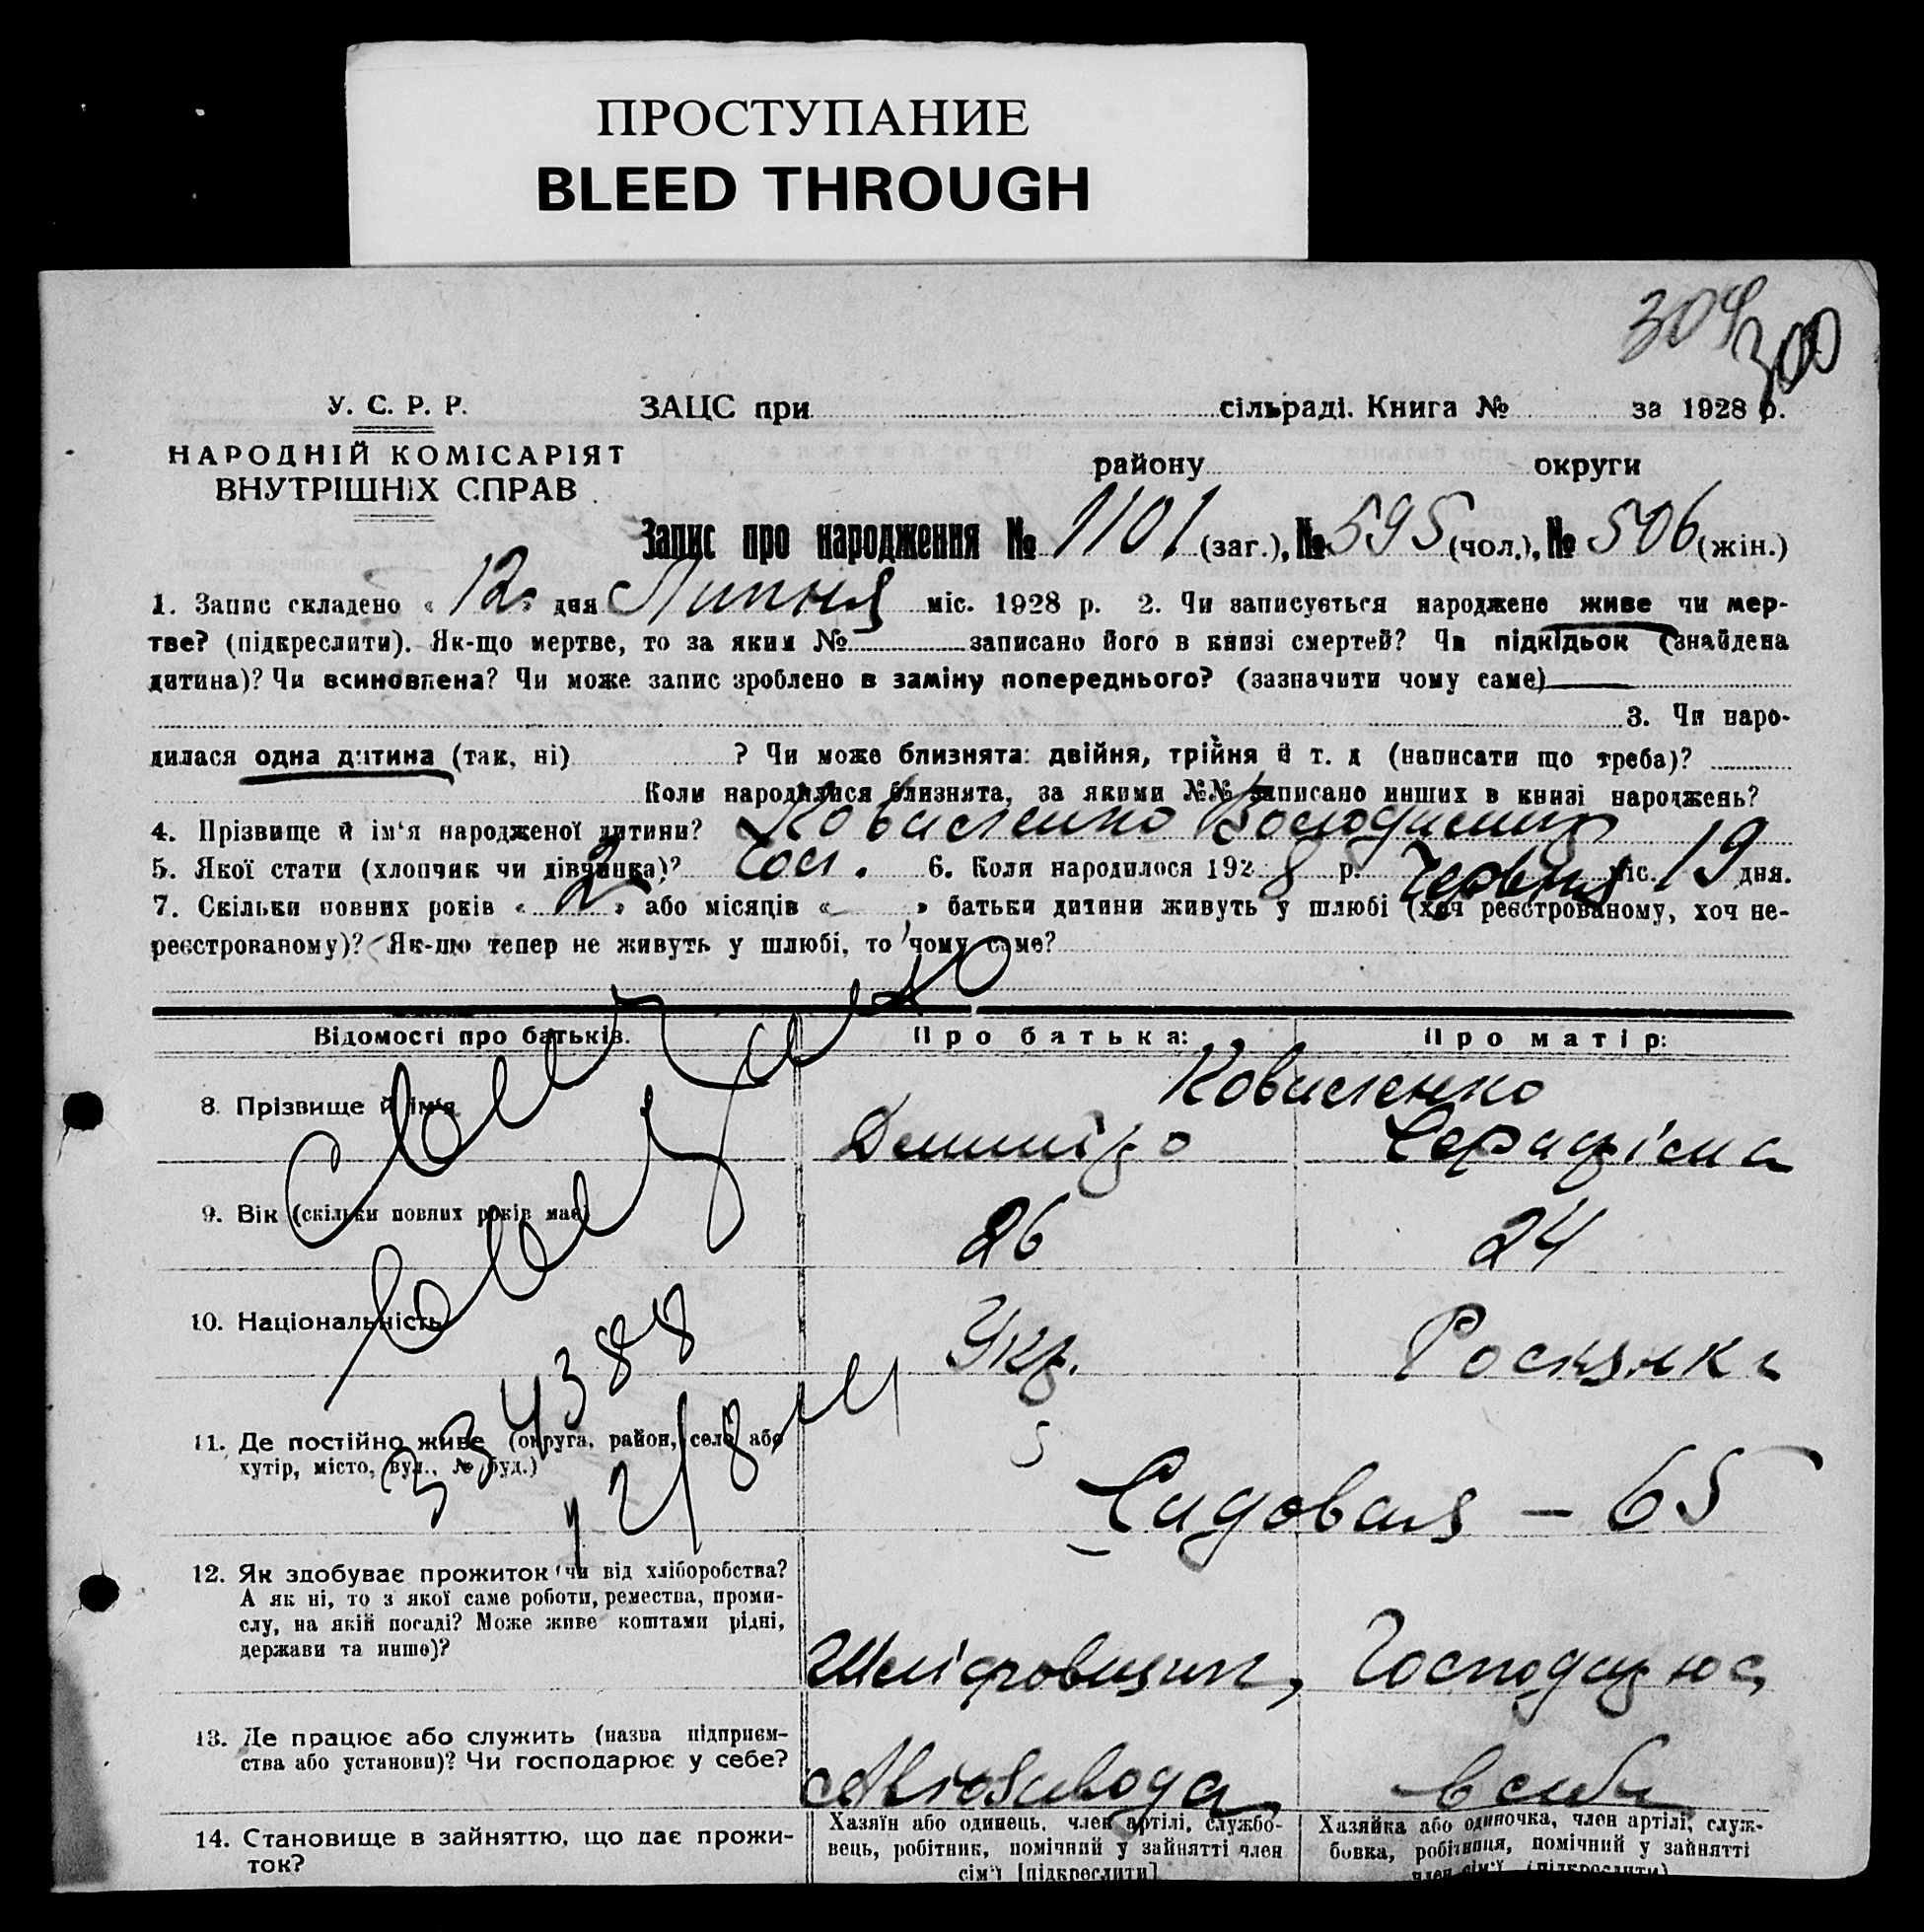 ПРОСТУПАНИЕ
BLEED THROUGH
304 300
У. С. Р. Р.
ЗАЦС при сільраді. Книга № за 1928 р.
НАРОДНІЙ КОМІСАРІЯТ
ВНУТРІШНІХ СПРАВ
району округи
Запис про народження № 1101 (заг.), № 595 (чол.), № 506 (жін.)
1. Запис складено « 12 дня Липня міс. 1928 р. 2. Чи записується народжене живе чи мер-
тве? (підкреслити). Як-що мертве, то за яким № записано його в книзі смертей? Чи підкідьок (знайдена
дитина)? Чи всиновлена? Чи може запис зроблено в заміну попереднього? (зазначити чому саме)
3. Чи наро-
дилася одна дитина (так, ні) ? Чи може близнята: двійня, трійня й т. д (написати що треба)?
Коли народилися близнята, за якими №№ записано инших в книзі народжень?
4. Прізвище й ім‘я народженої дитини? Володимир
5. Якої стати (хлопчик чи дівчинка)? Чол. 6. Коли народилося 1928 р. Червня міс. 19 дня.
7. Скільки повних років « 2 » або місяців « » батьки дитини живуть у шлюбі (хоч реєстрованому, хоч не-
реєстрованому)? Як-що тепер не живуть у шлюбі, то чому саме?
Відомості про батьків. Про батька: Про матір:
8. Прізвище й ім‘я
Дмитро Серафіма
9. Вік (скільки повних років має) 26 24
10. Національність Укр. Росиянка
11. Де постійно живе (округа, район, село або
хутір, місто, вул., № буд.)
Садовая – 65
12. Як здобуває прожиток (чи від хліборобства?
А як ні, то з якої саме роботи, ремества, проми-
слу, на якій посаді? Може живе коштами рідні,
держави та инше)?
Шліфовщик, Господарює
13. Де працює або служить (назва підприєм-
ства або установи)? Чи господарює у себе?
в себе
14. Становище в зайняттю, що дає прожи-
ток?
Хазяїн або одинець, член артілі, службо-
вець, робітник, помічний у зайнятті член
сім‘ї [підкреслити]
Хазяйка або одиночка, член артілі, служ-
бовка, робітниця, помічний у зайнятті
член сім‘ї (підкреслити)